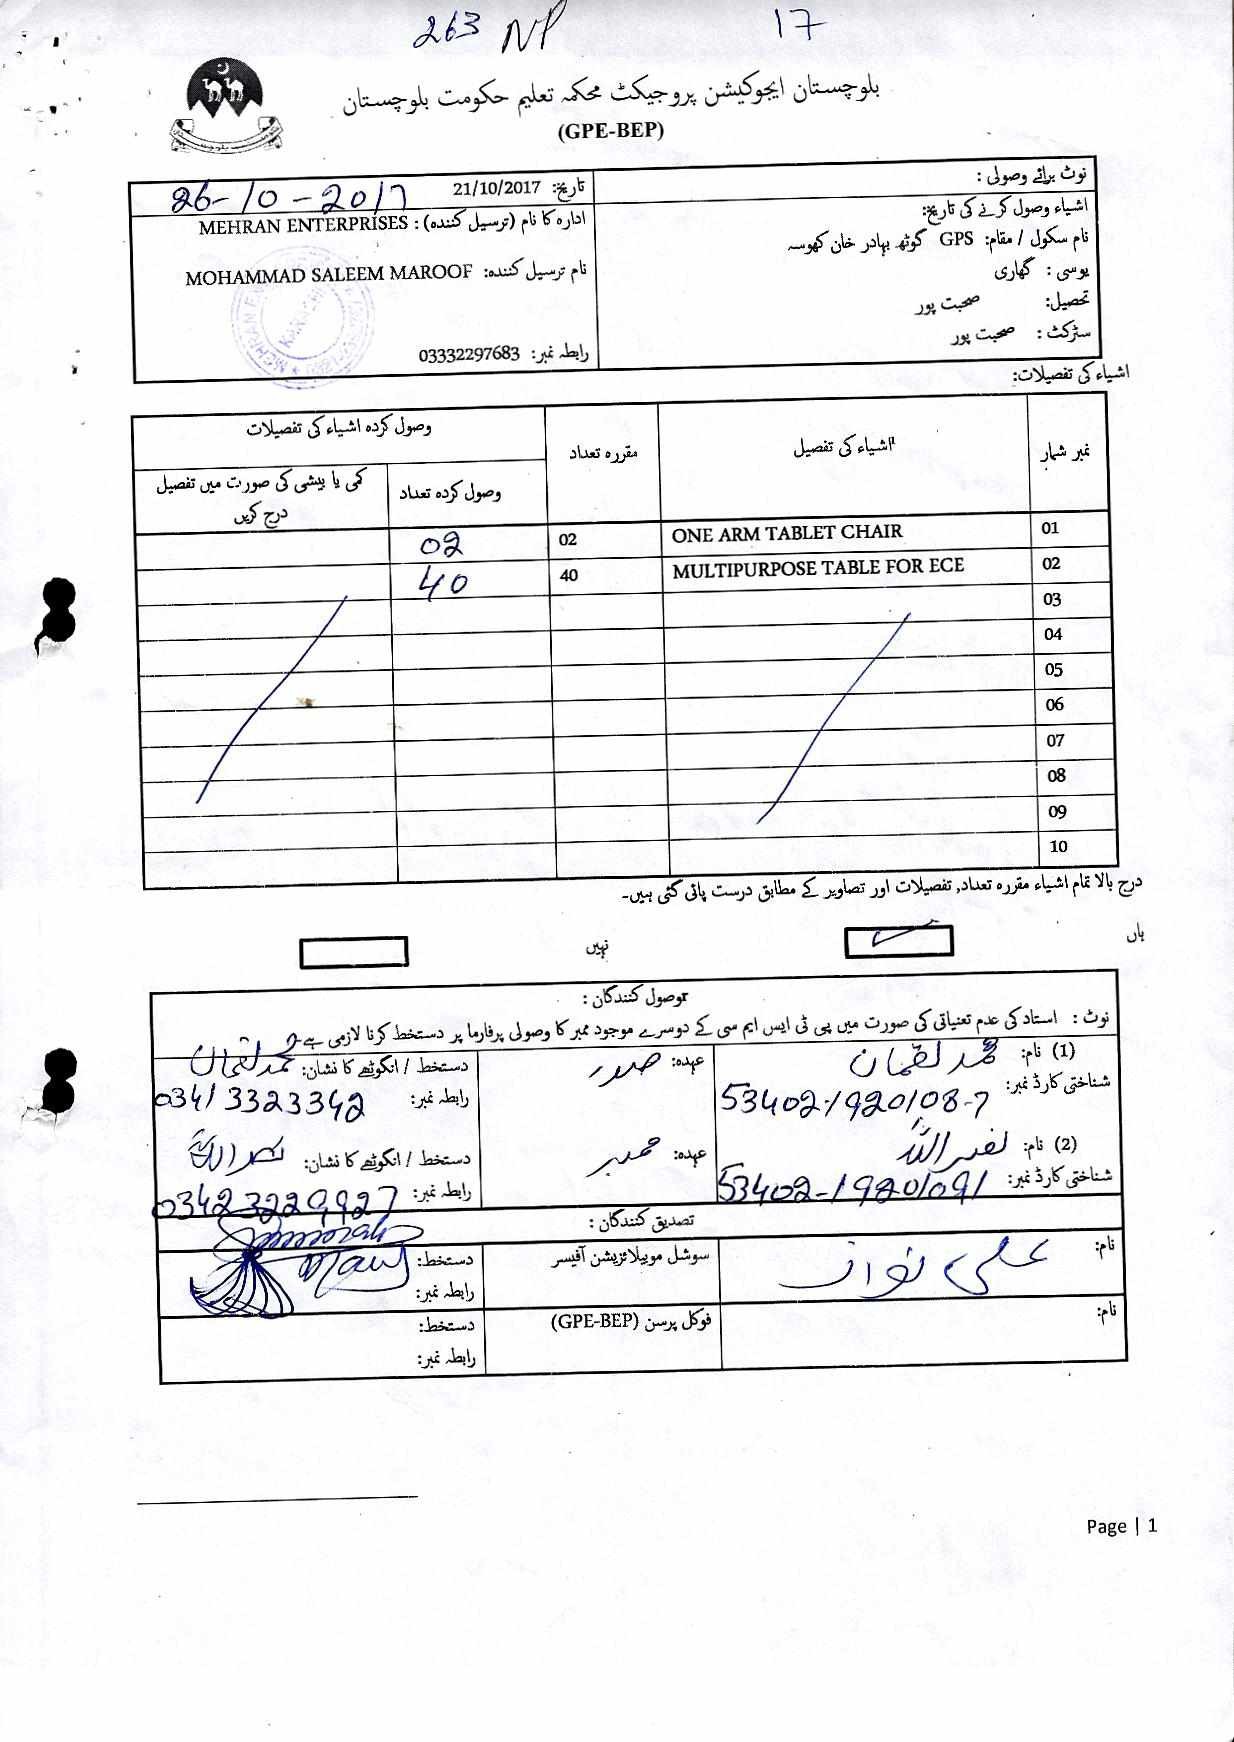 263 NP 17
بلوچستان ایجوکیشن پروجیکٹ محکمہ تعلیم حکومت بلوچستان
(GPE-BEP)
نوٹ برائے وصولی :
اشیاء وصول کرنے کی تاریخ:
تاریخ: 21/10/2017 26-10-2017
نام سکول / مقام: GPS گوٹھ بہادر خان کھوسہ
ادارہ کا نام (ترسیل کنندہ) : MEHRAN ENTERPRISES
یوسی : گھاری
نام ترسیل کنندہ: MOHAMMAD SALEEM MAROOF
تحصیل: صحبت پور
سٹرکٹ : صحبت پور
رابطہ نمبر: 03332297683
اشیاء کی تفصیلات:
نمبر شمار اشیاء کی تفصیل مقررہ تعداد وصول کردہ اشیاء کی تفصیلات
وصول کردہ تعداد کمی یا بیشی کی صورت میں تفصیل
درج کریں
01 ONE ARM TABLET CHAIR 02 02
02 MULTIPURPOSE TABLE FOR ECE 40 40
03
04
05
06
07
08
09
10
درج بالا تمام اشیاء مقررہ تعداد, تفصیلات اور تصاویر کے مطابق درست پائی گئی ہیں۔
ہاں نہیں
وصول کنندگان :
نوٹ : استاد کی عدم تعنیاتی کی صورت میں پی ٹی ایس ایم سی کے دوسرے موجود ممبر کا وصولی پرفارما پر دستخط کرنا لازمی ہے۔
(1) نام: محمد لقمان عہدہ: صدر دستخط / انگوٹھے کا نشان: محمد لقمان
شناختی کارڈ نمبر: 53402-1920108-7 رابطہ نمبر: 03413323342
(2) نام: نصیر اللہ عہدہ: ممبر دستخط / انگوٹھے کا نشان: نصر اللہ
شناختی کارڈ نمبر: 53402-1920109 رابطہ نمبر: 03423229927
تصدیق کنندگان :
نام: علی نواز سوشل موبیلائزیشن آفیسر دستخط:
رابطہ نمبر:
نام: فوکل پرسن (GPE-BEP) دستخط:
رابطہ نمبر:
Page | 1